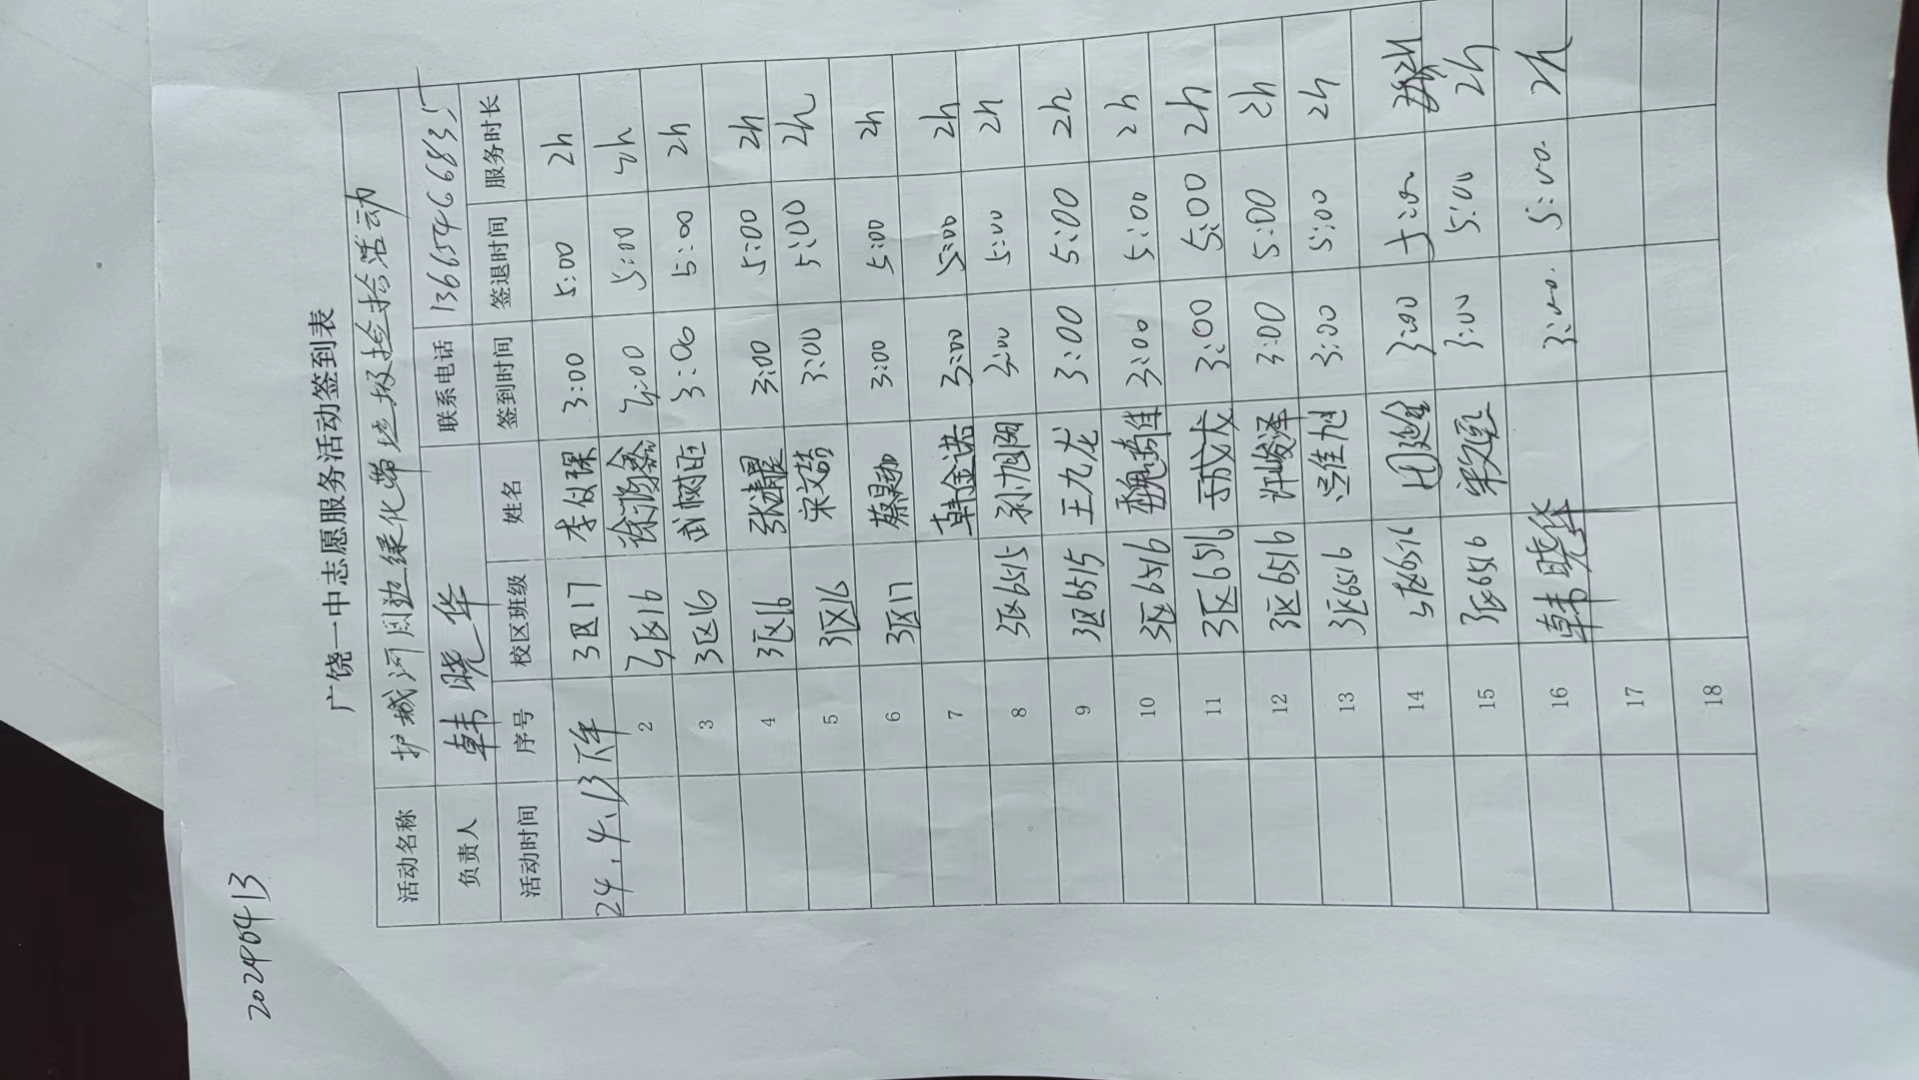 20240413
广饶一中志愿服务活动签到表
活动名称 护城河周边绿化带垃圾捡拾活动
负责人 韩晓华 联系电话 13665466835
活动时间 序号 校区班级 姓名 签到时间 签退时间 服务时长
24.4.13下午 3区17 李仪琛 3:00 5:00 2h
2 3区16 徐鸿鑫 3:00 5:00 2h
3 3区16 武树旺 3:00 5:00 2h
4 3区16 张清晨 3:00 5:00 2h
5 3区16 宋文喆 3:00 5:00 2h
6 3区17 蔡昊 3:00 5:00 2h
7 韩金诺 3:00 5:00 2h
8 3区6515 孙旭阳 3:00 5:00 2h
9 3区6515 王九龙 3:00 5:00 2h
10 3区6516 魏琦佳 3:00 5:00 2h
11 3区6516 成龙 3:00 5:00 2h
12 3区6516 许峻泽 3:00 5:00 2h
13 3区6516 佳旭 3:00 5:00 2h
14 3区6516 3:00 5:00 2h
15 3区6516 3:00 5:00 2h
16 韩晓华 3:00. 5:00. 2h
17
18